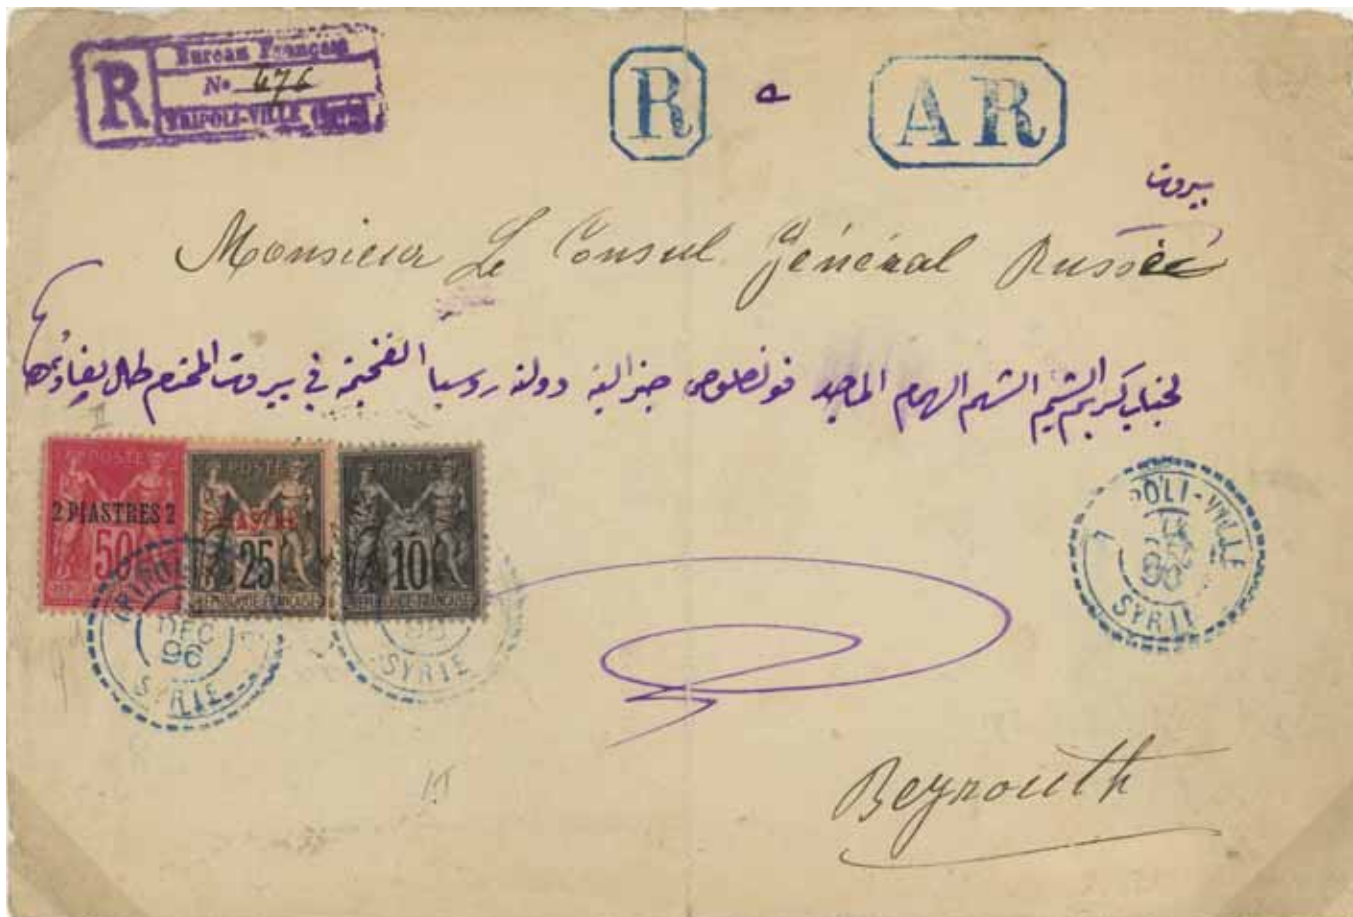 R
Bureau Français
No 476
TRIPOLI-VILLE
R
AR
بيروت
Monsieur Le Consul Général Russie
لجناب كريم الشيم الشهم الهمام الماجد قونصلوس جنرالية دولة روسيا الفخيمة في بيروت المحترم طال بقاؤه
POSTE
2 PIASTRES 2
50
POSTE
PIASTRE
25
REPUBLIQUE FRANCAISE
POSTE
10
REPUBLIQUE FRANCAISE
TRIPOLI
DEC
96
SYRIE
SYRIE
POLI-VILLE
SYRIE
Beyrouth